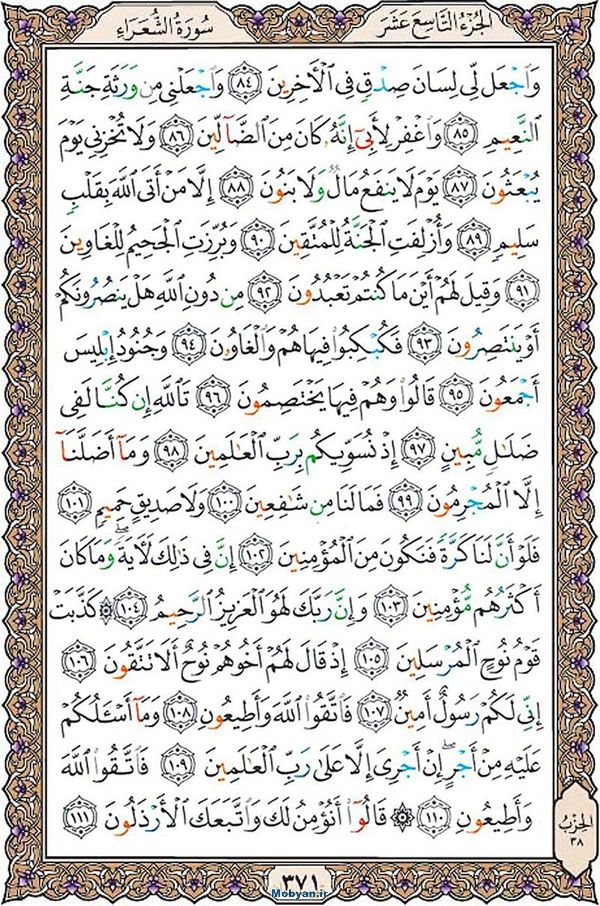 الجزء التاسع عشر
سورة الشعراء
وَاجْعَل لِّی لِسَانَ صِدْقٍ فِی الْآخِرِینَ ﴿٨٤﴾ وَاجْعَلْنِی مِن وَرَثَةِ جَنَّةِ
النَّعِیمِ ﴿٨٥﴾ وَاغْفِرْ لِأَبِی إِنَّهُ کَانَ مِنَ الضَّالِّینَ ﴿٨٦﴾ وَلَا تُخْزِنِی یَوْمَ
یُبْعَثُونَ ﴿٨٧﴾ یَوْمَ لَا یَنفَعُ مَالٌ وَلَا بَنُونَ ﴿٨٨﴾ إِلَّا مَنْ أَتَی اللَّهَ بِقَلْبٍ
سَلِیمٍ ﴿٨٩﴾ وَأُزْلِفَتِ الْجَنَّةُ لِلْمُتَّقِینَ ﴿٩٠﴾ وَبُرِّزَتِ الْجَحِیمُ لِلْغَاوِینَ
﴿٩١﴾ وَقِیلَ لَهُمْ أَیْنَ مَا کُنتُمْ تَعْبُدُونَ ﴿٩٢﴾ مِن دُونِ اللَّهِ هَلْ یَنصُرُونَکُمْ
أَوْ یَنتَصِرُونَ ﴿٩٣﴾ فَکُبْکِبُوا فِیهَا هُمْ وَالْغَاوُنَ ﴿٩٤﴾ وَجُنُودُ إِبْلِیسَ
أَجْمَعُونَ ﴿٩٥﴾ قَالُوا وَهُمْ فِیهَا یَخْتَصِمُونَ ﴿٩٦﴾ تَاللَّهِ إِن کُنَّا لَفِی
ضَلَالٍ مُّبِینٍ ﴿٩٧﴾ إِذْ نُسَوِّیکُم بِرَبِّ الْعَالَمِینَ ﴿٩٨﴾ وَمَا أَضَلَّنَا
إِلَّا الْمُجْرِمُونَ ﴿٩٩﴾ فَمَا لَنَا مِن شَافِعِینَ ﴿١٠٠﴾ وَلَا صَدِیقٍ حَمِیمٍ ﴿١٠١﴾
فَلَوْ أَنَّ لَنَا کَرَّةً فَنَکُونَ مِنَ الْمُؤْمِنِینَ ﴿١٠٢﴾ إِنَّ فِی ذَلِکَ لَآیَةً وَمَا کَانَ
أَکْثَرُهُم مُّؤْمِنِینَ ﴿١٠٣﴾ وَإِنَّ رَبَّکَ لَهُوَ الْعَزِیزُ الرَّحِیمُ ﴿١٠٤﴾ ۞ کَذَّبَتْ
قَوْمُ نُوحٍ الْمُرْسَلِینَ ﴿١٠٥﴾ إِذْ قَالَ لَهُمْ أَخُوهُمْ نُوحٌ أَلَا تَتَّقُونَ ﴿١٠٦﴾
إِنِّی لَکُمْ رَسُولٌ أَمِینٌ ﴿١٠٧﴾ فَاتَّقُوا اللَّهَ وَأَطِیعُونِ ﴿١٠٨﴾ وَمَا أَسْـَٔلُکُمْ
عَلَیْهِ مِنْ أَجْرٍ إِنْ أَجْرِیَ إِلَّا عَلَی رَبِّ الْعَالَمِینَ ﴿١٠٩﴾ فَاتَّقُوا اللَّهَ
وَأَطِیعُونِ ﴿١١٠﴾ ۞ قَالُوا أَنُؤْمِنُ لَکَ وَاتَّبَعَکَ الْأَرْذَلُونَ ﴿١١١﴾
الحزب
٣٨
٣٧١
Mobyan.ir